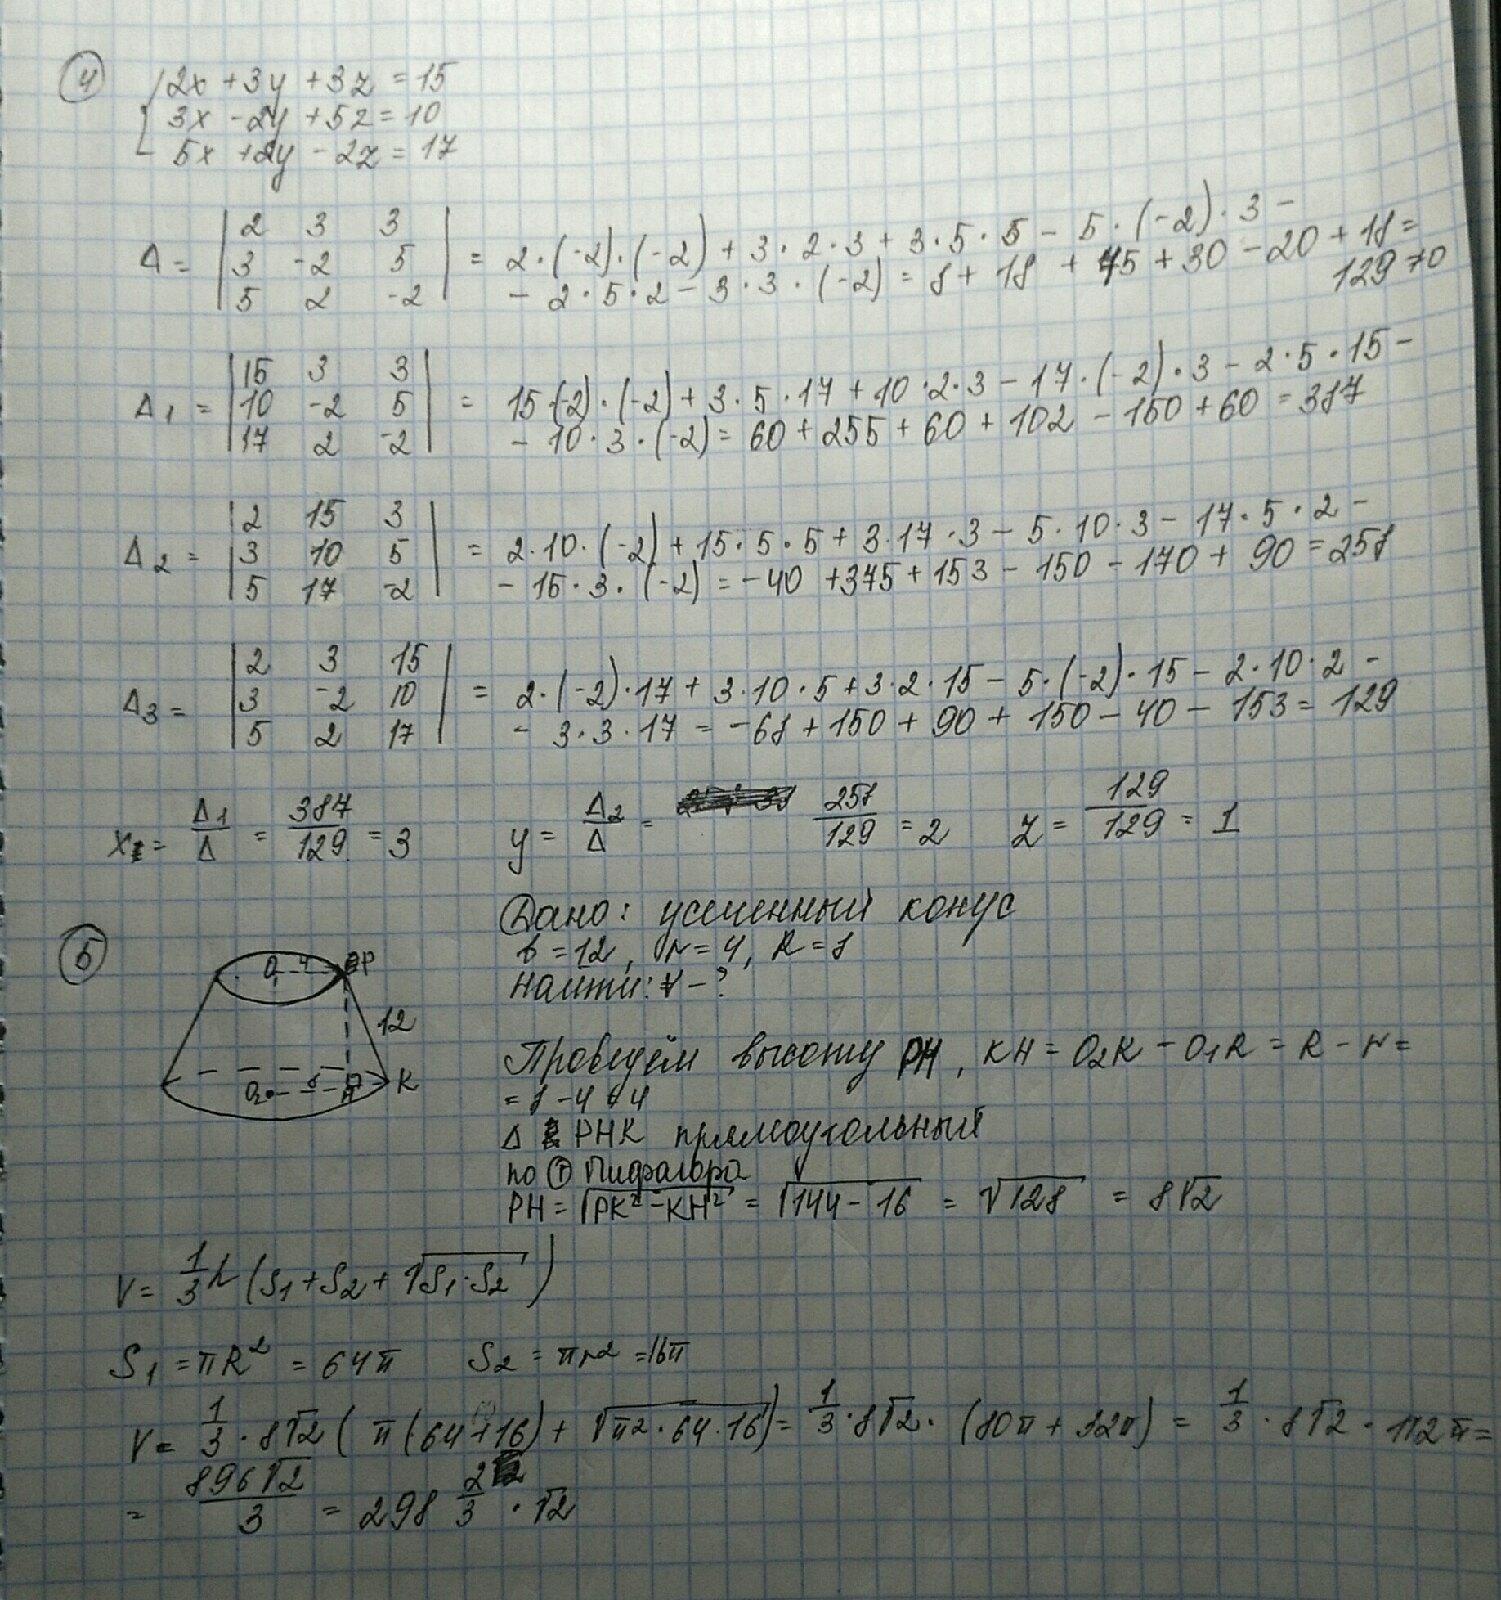 4
2x + 3y + 3z = 15
3x - 2y + 5z = 10
5x + 2y - 2z = 17
Δ = | 2 3 3 | = 2·(-2)·(-2) + 3·2·3 + 3·5·5 - 5·(-2)·3 -
| 3 -2 5 | - 2·5·2 - 3·3·(-2) = 8 + 18 + 75 + 30 - 20 + 18 =
| 5 2 -2 | 129 ≠ 0
Δ1 = | 15 3 3 | = 15·(-2)·(-2) + 3·5·17 + 10·2·3 - 17·(-2)·3 - 2·5·15 -
| 10 -2 5 | - 10·3·(-2) = 60 + 255 + 60 + 102 - 150 + 60 = 387
| 17 2 -2 |
Δ2 = | 2 15 3 | = 2·10·(-2) + 15·5·5 + 3·17·3 - 5·10·3 - 17·5·2 -
| 3 10 5 | - 15·3·(-2) = -40 + 375 + 153 - 150 - 170 + 90 = 258
| 5 17 -2 |
Δ3 = | 2 3 15 | = 2·(-2)·17 + 3·10·5 + 3·2·15 - 5·(-2)·15 - 2·10·2 -
| 3 -2 10 | - 3·3·17 = -68 + 150 + 90 + 150 - 40 - 153 = 129
| 5 2 17 |
x = Δ1/Δ = 387/129 = 3 y = Δ2/Δ = 258/129 = 2 z = 129/129 = 1
5
Дано: усеченный конус
r = 4, R = 8
Найти: V - ?
O 4 P
12
O2 8 H K
Проведём высоту PH, KH = O2K - O1R = R - r =
= 8 - 4 = 4
Δ PHK прямоугольный
по Т Пифагора
PH = √(PK² - KH²) = √(144 - 16) = √128 = 8√2
V = 1/3 h (S1 + S2 + √(S1·S2))
S1 = πR² = 64π S2 = πr² = 16π
V = 1/3 · 8√2 (π(64+16) + √(π²·64·16)) = 1/3 · 8√2 · (80π + 32π) = 1/3 · 8√2 · 112π =
= 896√2/3 = 298 2/3 · √2